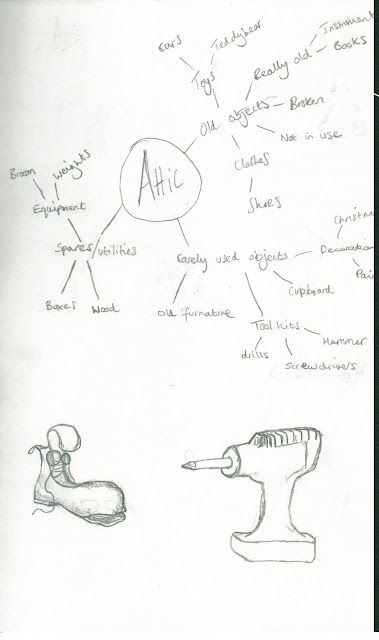 Instrument
Cars
Teddybear
Books
Really old
Toys
Old objects
Broken
Not in use
Clothes
Shoes
Attic
Broom
Weights
Equipment
Spares/utilities
Boxes
Wood
Rarely used objects
Christm
Decoration
Pai
Cupboard
Old furnature
Tool kits
Hammer
drills
Screwdrivers